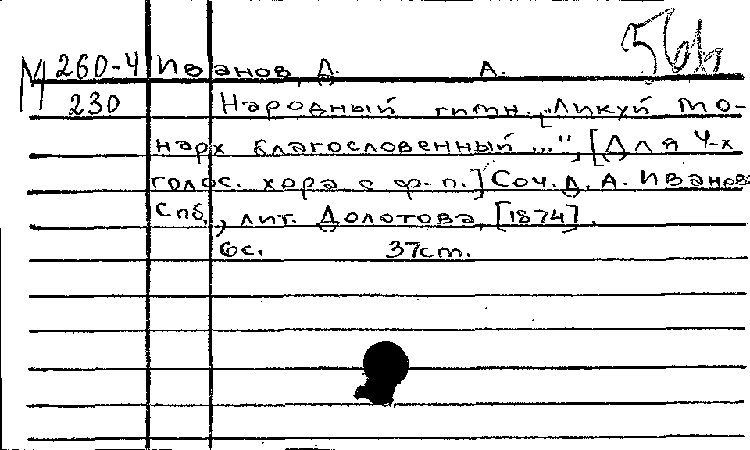 56б
М 260-4 Иванов, Д. А.
230 Народный гимн. „Ликуй мо-
нарх благословенный ...", [Для 4-х
голос. хора с ф.-п.] Соч. Д. А. Иванова
Спб., лит. Долотова, [1874].
6с. 37cm.